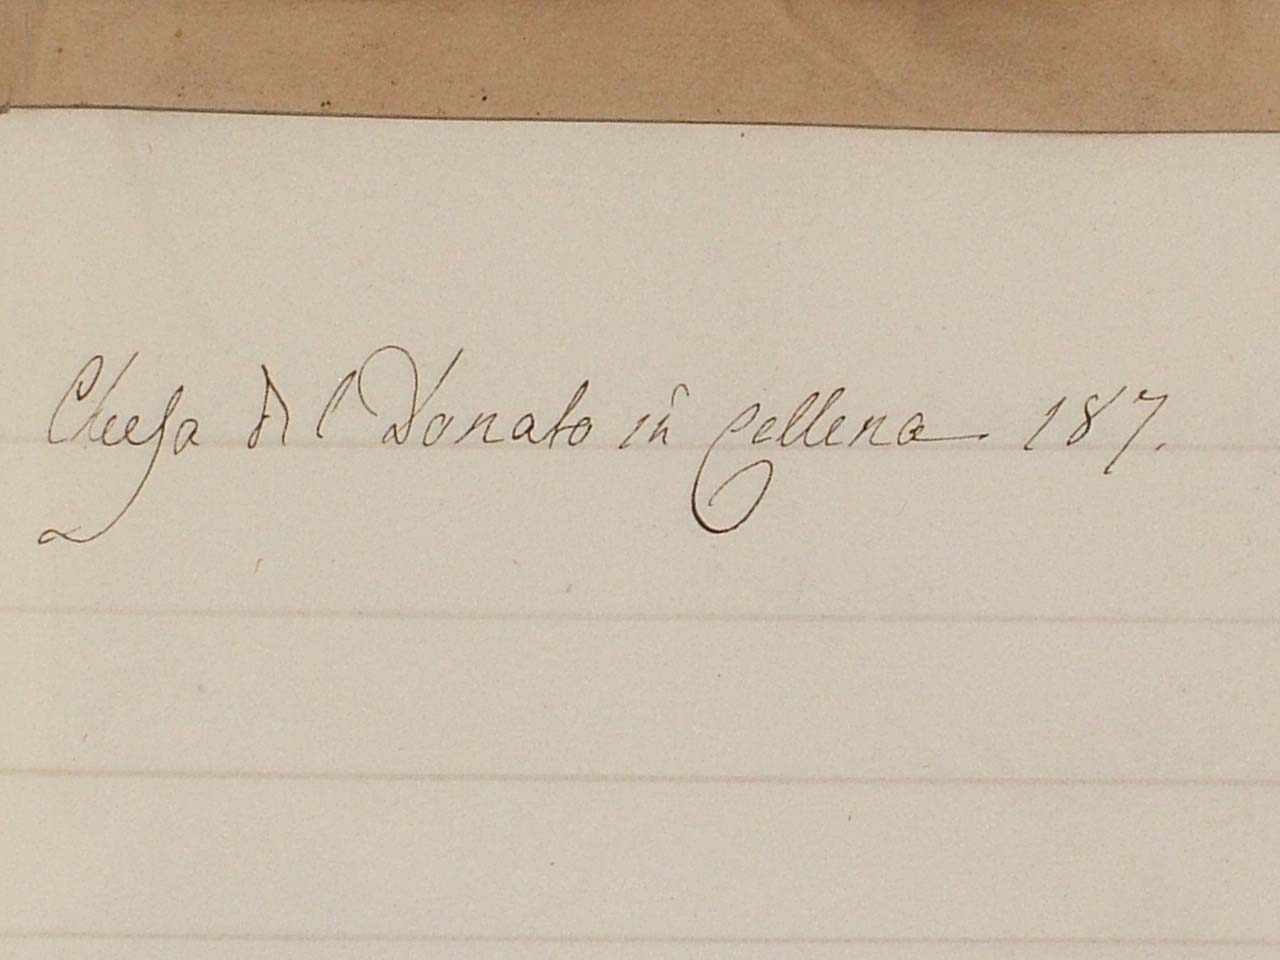 Chiesa di S Donato in Collena. 187.